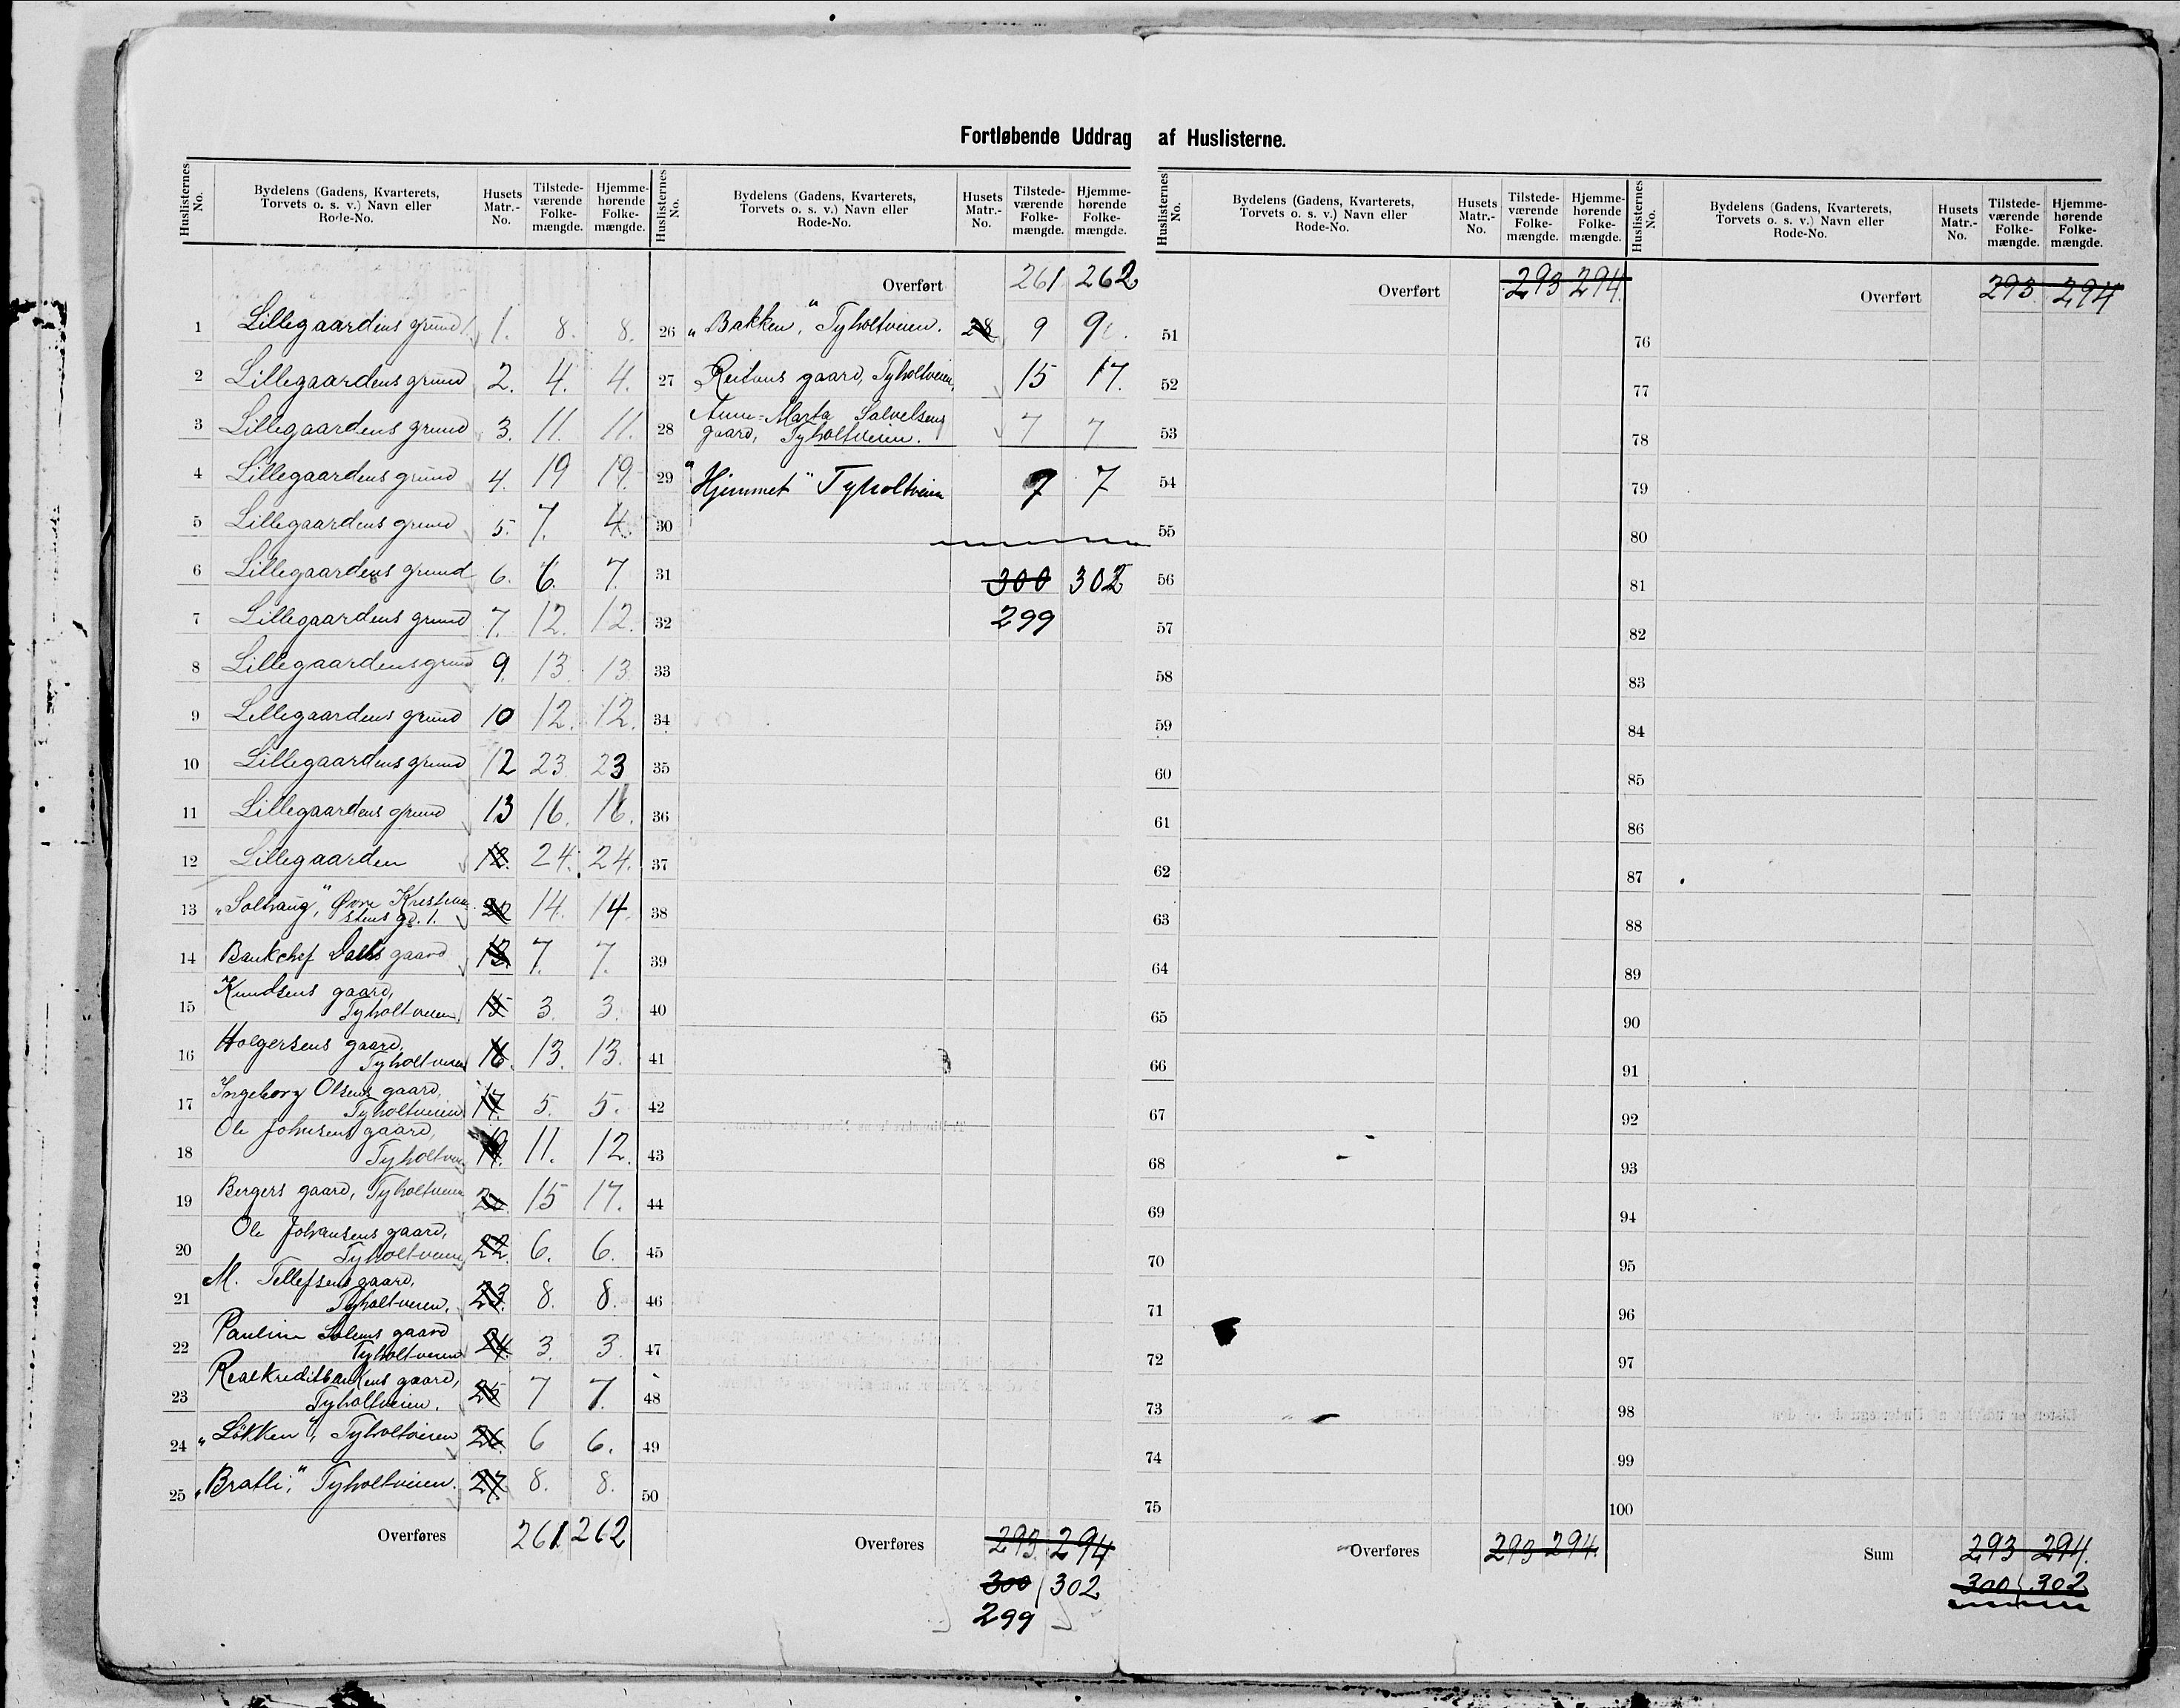 Fortløbende Uddrag af Huslisterne.
Huslisternes No. Bydelens (Gadens, Kvarterets, Torvets o. s. v.) Navn eller Rode-No. Husets Matr.-No. Tilstedeværende Folkemængde. Hjemmehørende Folkemængde.
1 Lillegaardens grund 1. 8. 8.
2 Lillegaardens grund 2. 4. 4.
3 Lillegaardens grund 3. 11. 11.
4 Lillegaardens grund 4. 19 19.
5 Lillegaardens grund 5. 7. 4.
6 Lillegaardens grund 6. 6. 7.
7 Lillegaardens grund 7. 12. 12.
8 Lillegaardens grund 9. 13. 13.
9 Lillegaardens grund 10 12. 12.
10 Lillegaardens grund 12 23 23
11 Lillegaardens grund 13 16. 16.
12 Lillegaarden 24. 24.
13 „Solhaug", Øvre
gd. 1. 14. 14.
14 Bankchef Dahls gaard 7. 7.
15 Knudsens gaard,
Tyholtveien, 15 3. 3.
16 Holgersens gaard,
Tyholtveien 16. 13. 13.
17 Ingeborg Olsens gaard,
Tyholtveien 17. 5. 5.
18 Ole Johnsens gaard,
Tyholtvei 19. 11. 12.
19 Bergers gaard, Tyholtveien 15 17.
20 Ole Johansens gaard,
Tyholtveien, 22. 6. 6.
21 M. Tellefsens gaard,
Tyholtveien. 23. 8. 8.
22 Pauline gaard
Tyholtveien 24. 3. 3.
23 Realkreditbankens gaard,
Tyholtveien. 25 7 7.
24 „Løkken", Tyholtveien 26. 6 6.
25 „Bratli," Tyholtveien. 27. 8. 8.
Overføres 261 262
Huslisternes No. Bydelens (Gadens, Kvarterets, Torvets o. s. v.) Navn eller Rode-No. Husets Matr.-No. Tilstedeværende Folkemængde. Hjemmehørende Folkemængde.
Overført 261 262
26 „Bakken", Tyholtveien. 28 9 9.
27 gaard, Tyholtveien, 15 17.
28 Anne-Marta Salvelsens
gaard, Tyholtveien. 7 7
29 "Hjemmet" Tyholtveien 7 7
30
31 300 302
32 299
33
34
35
36
37
38
39
40
41
42
43
44
45
46
47
48
49
50
Overføres 293 294
300 302
299
Huslisternes No. Bydelens (Gadens, Kvarterets, Torvets o. s. v.) Navn eller Rode-No. Husets Matr.-No. Tilstedeværende Folkemængde. Hjemmehørende Folkemængde.
Overført 293 294.
51
52
53
54
55
56
57
58
59
60
61
62
63
64
65
66
67
68
69
70
71
72
73
74
75
Overføres 293 294.
Huslisternes No. Bydelens (Gadens, Kvarterets, Torvets o. s. v.) Navn eller Rode-No. Husets Matr.-No. Tilstedeværende Folkemængde. Hjemmehørende Folkemængde.
Overført 293. 294
76
77
78
79
80
81
82
83
84
85
86
87
88
89
90
91
92
93
94
95
96
97
98
99
100
Sum 293 294.
300 302